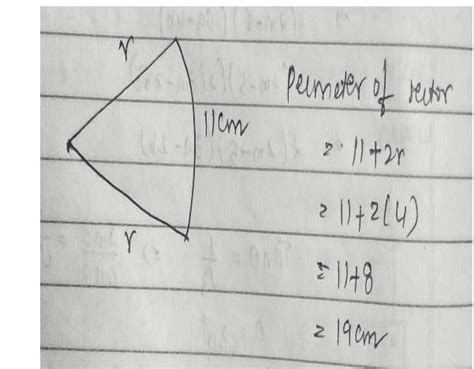 r
Perimeter of sector
11cm
= 11+2r
= 11+2(4)
r
= 11+8
= 19cm